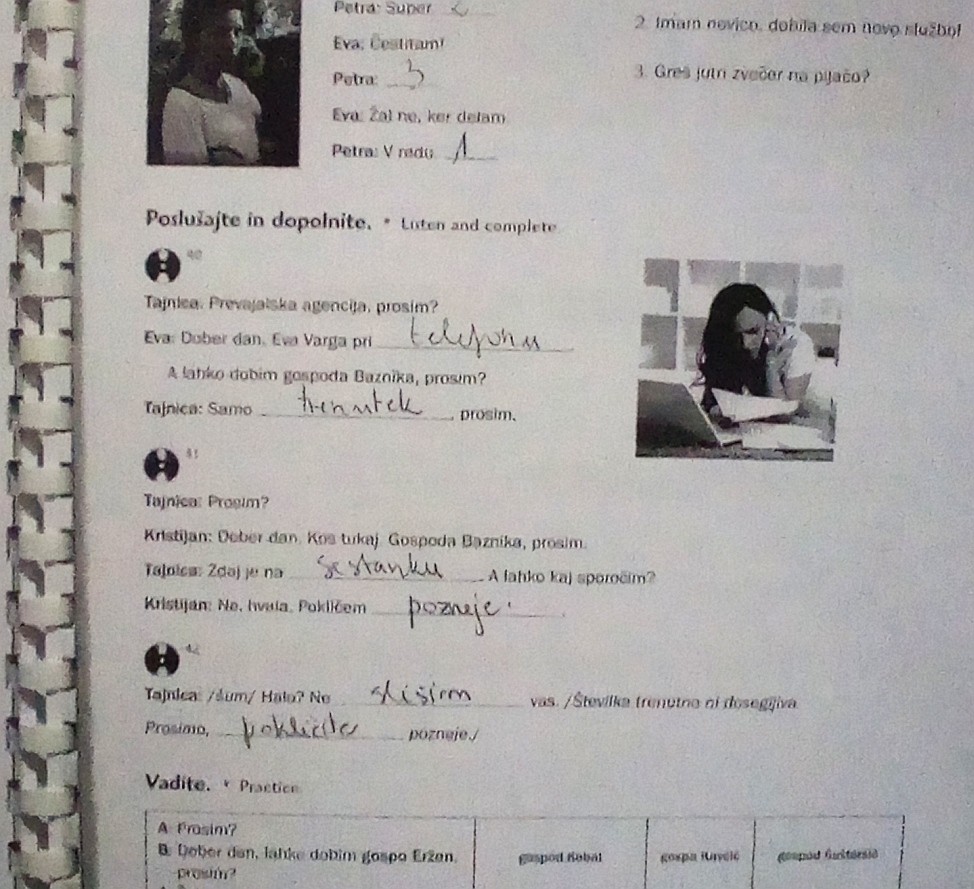 Petra: Super
2. Imam novico, dobila sem novo službo!
Eva: Čestitam!
3. Greš jutri zvečer na pijačo?
Petra: 3
Eva: Žal ne, ker delam.
Petra: V redu. 1
Poslušajte in dopolnite. * Listen and complete.
40
Tajnica: Prevajalska agencija, prosim?
Eva: Dober dan. Eva Varga pri telefonu
A lahko dobim gospoda Baznika, prosim?
Tajnica: Samo trenutek, prosim.
41
Tajnica: Prosim?
Kristijan: Dober dan. Kos tukaj. Gospoda Baznika, prosim.
Tajnica: Zdaj je na sestanku. A lahko kaj sporočim?
Kristijan: Ne, hvala. Pokličem pozneje.
42
Tajnica: /šum/ Halo? Ne slišim vas. /Številka trenutno ni dosegljiva.
Prosimo, pokličite pozneje./
Vadite. * Practice.
A: Prosim?
B: Dober dan, lahko dobim gospo Eržen, prosim?
gospod Kobal
gospa
gospod